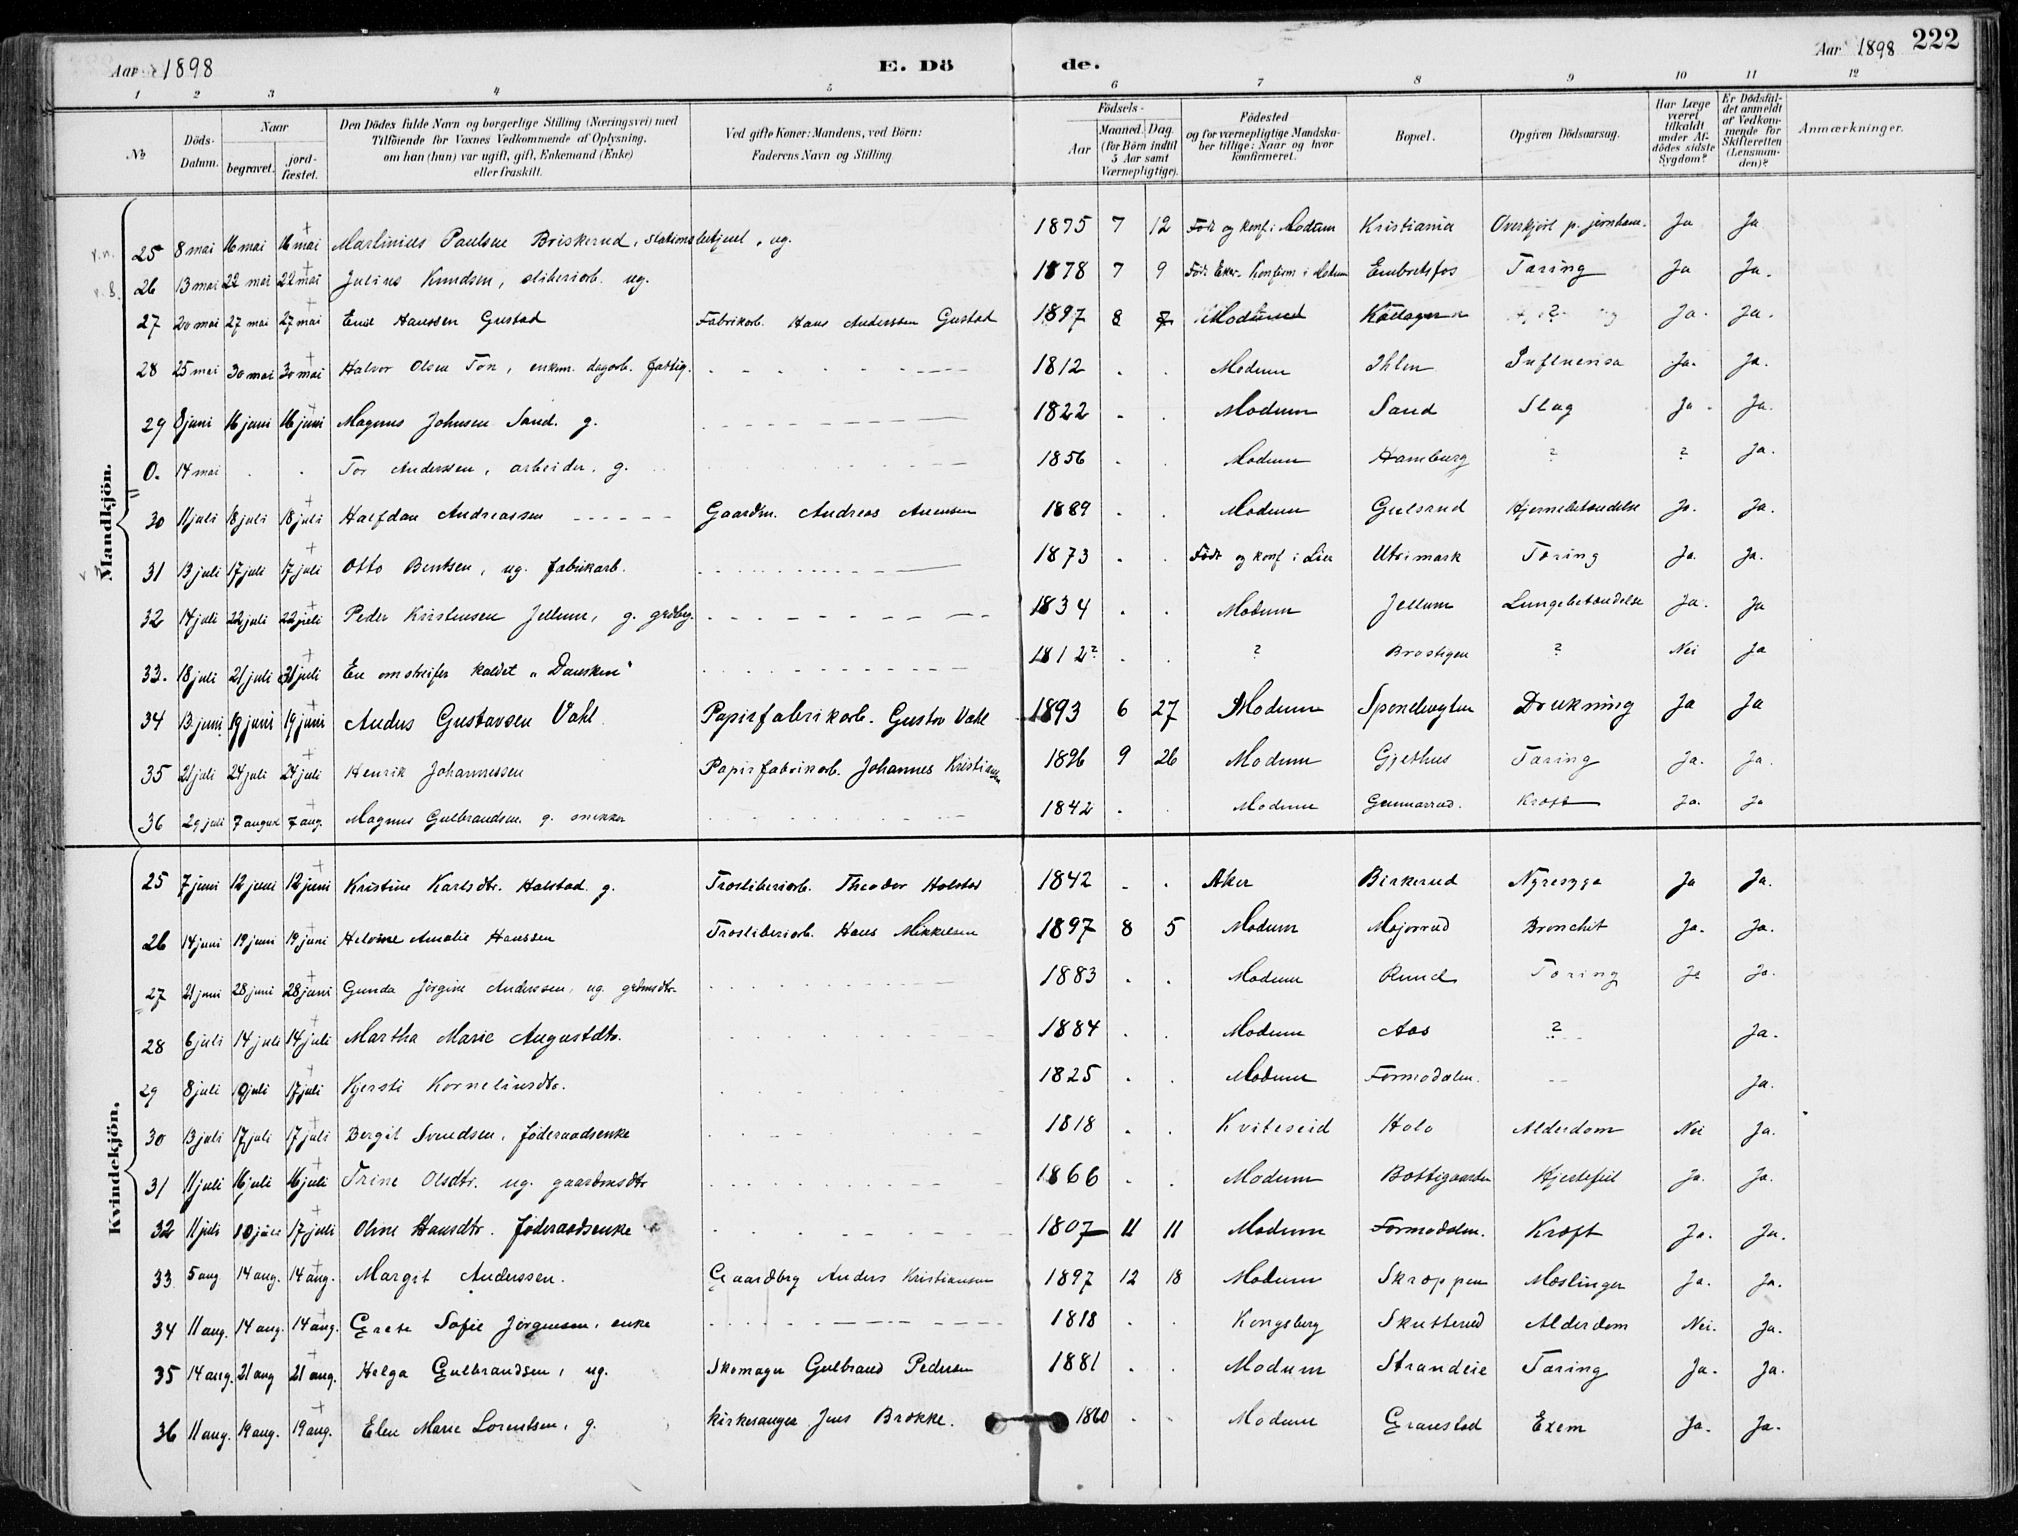 Aar 1898 E. Dö de. Aar 1898 222
1 2 3 4 5 6 7 8 9 10 11 12
No Döds-Datum. Naar begravet. jord-fæstet. Den Dödes fulde Navn og borgerlige Stilling (Næringsvei) med Tilföiende for Voxnes Vedkommende af Oplysning, om han (hun) var ugift, gift, Enkemand (Enke) eller fraskilt. Ved gifte Koner: Mandens, ved Börn: Faderens Navn og Stilling. Födsels- Aar Maaned. Dag. (for Börn indtil 5 Aar samt Værnepligtige). Födested og for værnepligtige Mandskaber tillige: Naar og hvor konfirmeret. Bopæl. Opgiven Dödsaarsag. Har Læge været tilkaldt under Afdödes sidste Sygdom? Er Dödsfaldet anmeldt af Vedkommende for Skifteretten (Lensmanden)? Anmærkninger.
Mandkjön.
25 8 mai 16 mai 16 mai Martinius Paulsen Briskerud, stationsbetjent, ug. 1875 7 12 Född og konf. i Modum Kristiania Overkjørt p. jernbane. Ja Ja
26 13 mai 22 mai 22 mai Julius Knudsen, sliberiarb. ug. 1878 7 9 Född Eker. Konfirm i Modum Embretsfos Tæring Ja Ja.
27 20 mai 27 mai 27 mai Emil Hanssen Gustad Fabrikarb. Hans Anderssen Gustad 1897 8 Modum ? Ja. Ja.
28 25 mai 30 mai 30 mai Halvor Olsen Ton, enkm. dagarb. fattig. 1812 Modum Ihlen Influensa Ja. Ja.
29 8 juni 16 juni 16 juni Magnus Johnsen Sand. g. 1822 Modum Sand Slag Ja. Ja.
0. 14 mai Tor Anderssen, arbeider, g. 1856 Modum Hamburg ? ? Ja.
30 11 juli 18 juli 18 juli Halfdan Andreassen Gaardm. Andreas Amensen 1889 Modum Gulsrud Hjernebetændelse Ja. Ja.
31 13 juli 17 juli 17 juli Otto Bentsen, ug. fabrikarb. 1873 Född og konf i Lier Utvimark Tæring Ja. Ja.
32 14 juli 22 juli 22 juli Peder Kristensen Jellum, g. grdbrg. 1834 Modum Jellum Lungebetændelse Ja. Ja
33. 18 juli 21 juli 21 juli En omstreifer kaldet "Dansken" 1812? ? Brostigen ? Nei Ja
34 13 juni 19 juni 19 juni Anders Gustavsen Vahl Papirfabrikarb. Gustav Vahl 1893 6 27 Modum Drukning Ja Ja
35 21 juli 24 juli 24 juli Henrik Johannessen Papirfabrikarb. Johannes Kristiansen 1896 9 26 Modum Gjethus Tæring Ja. Ja.
36 29 juli 7 august 7 aug. Magnus Gulbrandsen g. snekker 1842 Modum Gunnarrud. Kræft Ja. Ja
Kvindekjön.
25 7 juni 12 juni 12 juni Kristine Karlsdtr. Holstad g. Træsliberiarb. Theodor Holstad 1842 Aker Birkerud Nyresyge Ja Ja.
26 14 juni 19 juni 19 juni Helvine Amalie Hanssen Træsliberiarb. Hans Mikkelsen 1897 8 5 Modum Majorrud Bronchit Ja. Ja.
27 21 juni 28 juni 28 juni Gunda Jørgine Anderssen, ug grdmsdtr. 1883 Modum Rund Tæring Ja Ja.
28 6 juli 14 juli 14 juli Martha Marie Augustdtr. 1884 Modum Aas ? Ja.
29 8 juli 10 juli 17 juli Kjersti Korneliusdtr. 1825 Modum Formodalen. Ja.
30 13 juli 17 juli 17 juli Bergit Svendsen, føderaadsenke 1818 Kviteseid Holo Alderdom Nei Ja.
31 11 juli 16 juli 16 juli Trine Olsdtr. ug. gaardmsdtr 1866 Modum Bottigaarden Hjertefeil Ja. Ja.
32 11 juli 10 juli 17 juli Oline Hansdtr. føderaadsenke 1807 11 11 Modum Formodalen. Kræft Ja. Ja.
33 5 aug 14 aug. 14 aug. Margit Anderssen. Gaardbrg Anders Kristiansen 1897 12 18 Modum Skroppen Mæslinger Ja. Ja.
34 11 aug. 14 aug. 14 aug. Grete Sofie Jørgensen, enke 1818 Kongsberg Skutterud Alderdom Nei. Ja.
35 14 aug. 21 aug 21 aug. Helga Gulbrandsen, ug. Skomager Gulbrand Pedersen 1881 Modum Strandeie Tæring Ja. Ja.
36 11 aug. 19 aug. 19 aug. Elen Marie Lorentsen, g. Kirkesanger Jens Brække. 1860 Modum Granstad Exem Ja. Ja.